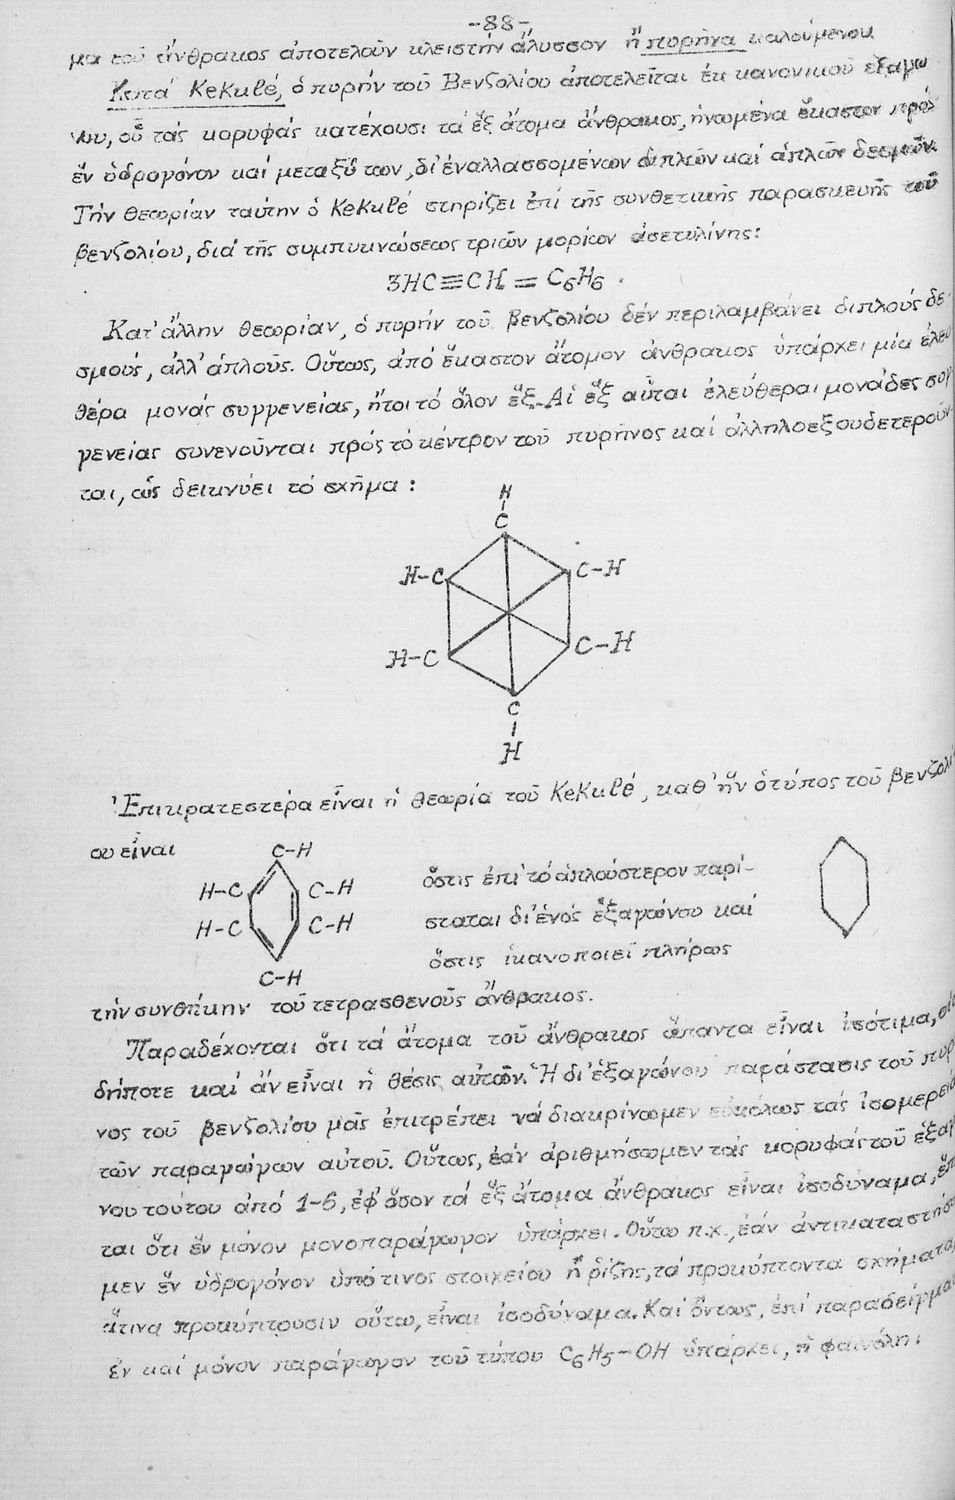 -88-
μα τοῦ ἄνθρακος ἀποτελοῦν κλειστήν ἄλυσσον ἤ πυρῆνα καλούμενον
Κατά Kekulé, ὁ πυρήν τοῦ Βενζολίου ἀποτελεῖται ἐκ κανονικοῦ ἑξαγώ
νου, οὗ τάς κορυφάς κατέχουσι τά ἕξ ἄτομα ἄνθρακος, ἡνωμένα ἕκαστον πρός
ἕν ὑδρογόνον καί μεταξύ των, δι' ἐναλλασσομένων διπλῶν καί ἁπλῶν δεσμῶν.
Τήν θεωρίαν ταύτην ὁ Kekulé στηρίζει ἐπί τῆς συνθετικῆς παρασκευῆς τοῦ
βενζολίου, διά τῆς συμπυκνώσεως τριῶν μορίων ἀσετυλίνης:
3HC≡CH = C6H6.
Κατ' ἄλλην θεωρίαν, ὁ πυρήν τοῦ βενζολίου δέν περιλαμβάνει διπλούς δε-
σμούς, ἀλλ' ἁπλοῦς. Οὕτως, ἀπό ἕκαστον ἄτομον ἄνθρακος ὑπάρχει μία ἐλευ
θέρα μονάς συγγενείας, ἤτοι τό ὅλον ἕξ. Αἱ ἕξ αὗται ἐλεύθεραι μονάδες συγ
γενείας συνενοῦνται πρός τό κέντρον τοῦ πυρῆνος καί ἀλληλοεξουδετεροῦν-
ται, ὡς δεικνύει τό σχῆμα:
H
C
H-C C-H
H-C C-H
C
H
Ἐπικρατεστέρα εἶναι ἡ θεωρία τοῦ Kekulé, καθ' ἥν ὁ τύπος τοῦ βενζολί
ου εἶναι
C-H
H-C C-H
H-C C-H
C-H
ὅστις ἐπί τό ἁπλούστερον παρί-
σταται δι' ἑνός ἑξαγώνου καί
ὅστις ἱκανοποιεῖ πλήρως
τήν συνθήκην τοῦ τετρασθενοῦς ἄνθρακος.
Παραδέχονται ὅτι τά ἄτομα τοῦ ἄνθρακος ἅπαντα εἶναι ἰσότιμα, οἱα
δήποτε καί ἄν εἶναι ἡ θέσις αὐτῶν. Ἡ δι' ἑξαγώνου παράστασις τοῦ πυρ
νος τοῦ βενζολίου μᾶς ἐπιτρέπει νά διακρίνωμεν εὐκόλως τάς ἰσομερεία
τῶν παραγώγων αὐτοῦ. Οὕτως, ἐάν ἀριθμήσωμεν τάς κορυφάς τοῦ ἑξαγ
νου τούτου ἀπό 1-6, ἐφ' ὅσον τά ἕξ ἄτομα ἄνθρακος εἶναι ἰσοδύναμα, ἕπ
ται ὅτι ἕν μόνον μονοπαράγωγον ὑπάρχει. Οὕτω π.χ., ἐάν ἀντικαταστήσ
μεν ἕν ὑδρογόνον ὑπό τινος στοιχείου ἤ ῥίζης, τά προκύπτοντα σχήματα,
ἅτινα προκύπτουσιν οὕτω, εἶναι ἰσοδύναμα. Καί ὄντως, ἐπί παραδείγμα
ἕν καί μόνον παράγωγον τοῦ τύπου C6H5-OH ὑπάρχει, ἡ φαινόλη: